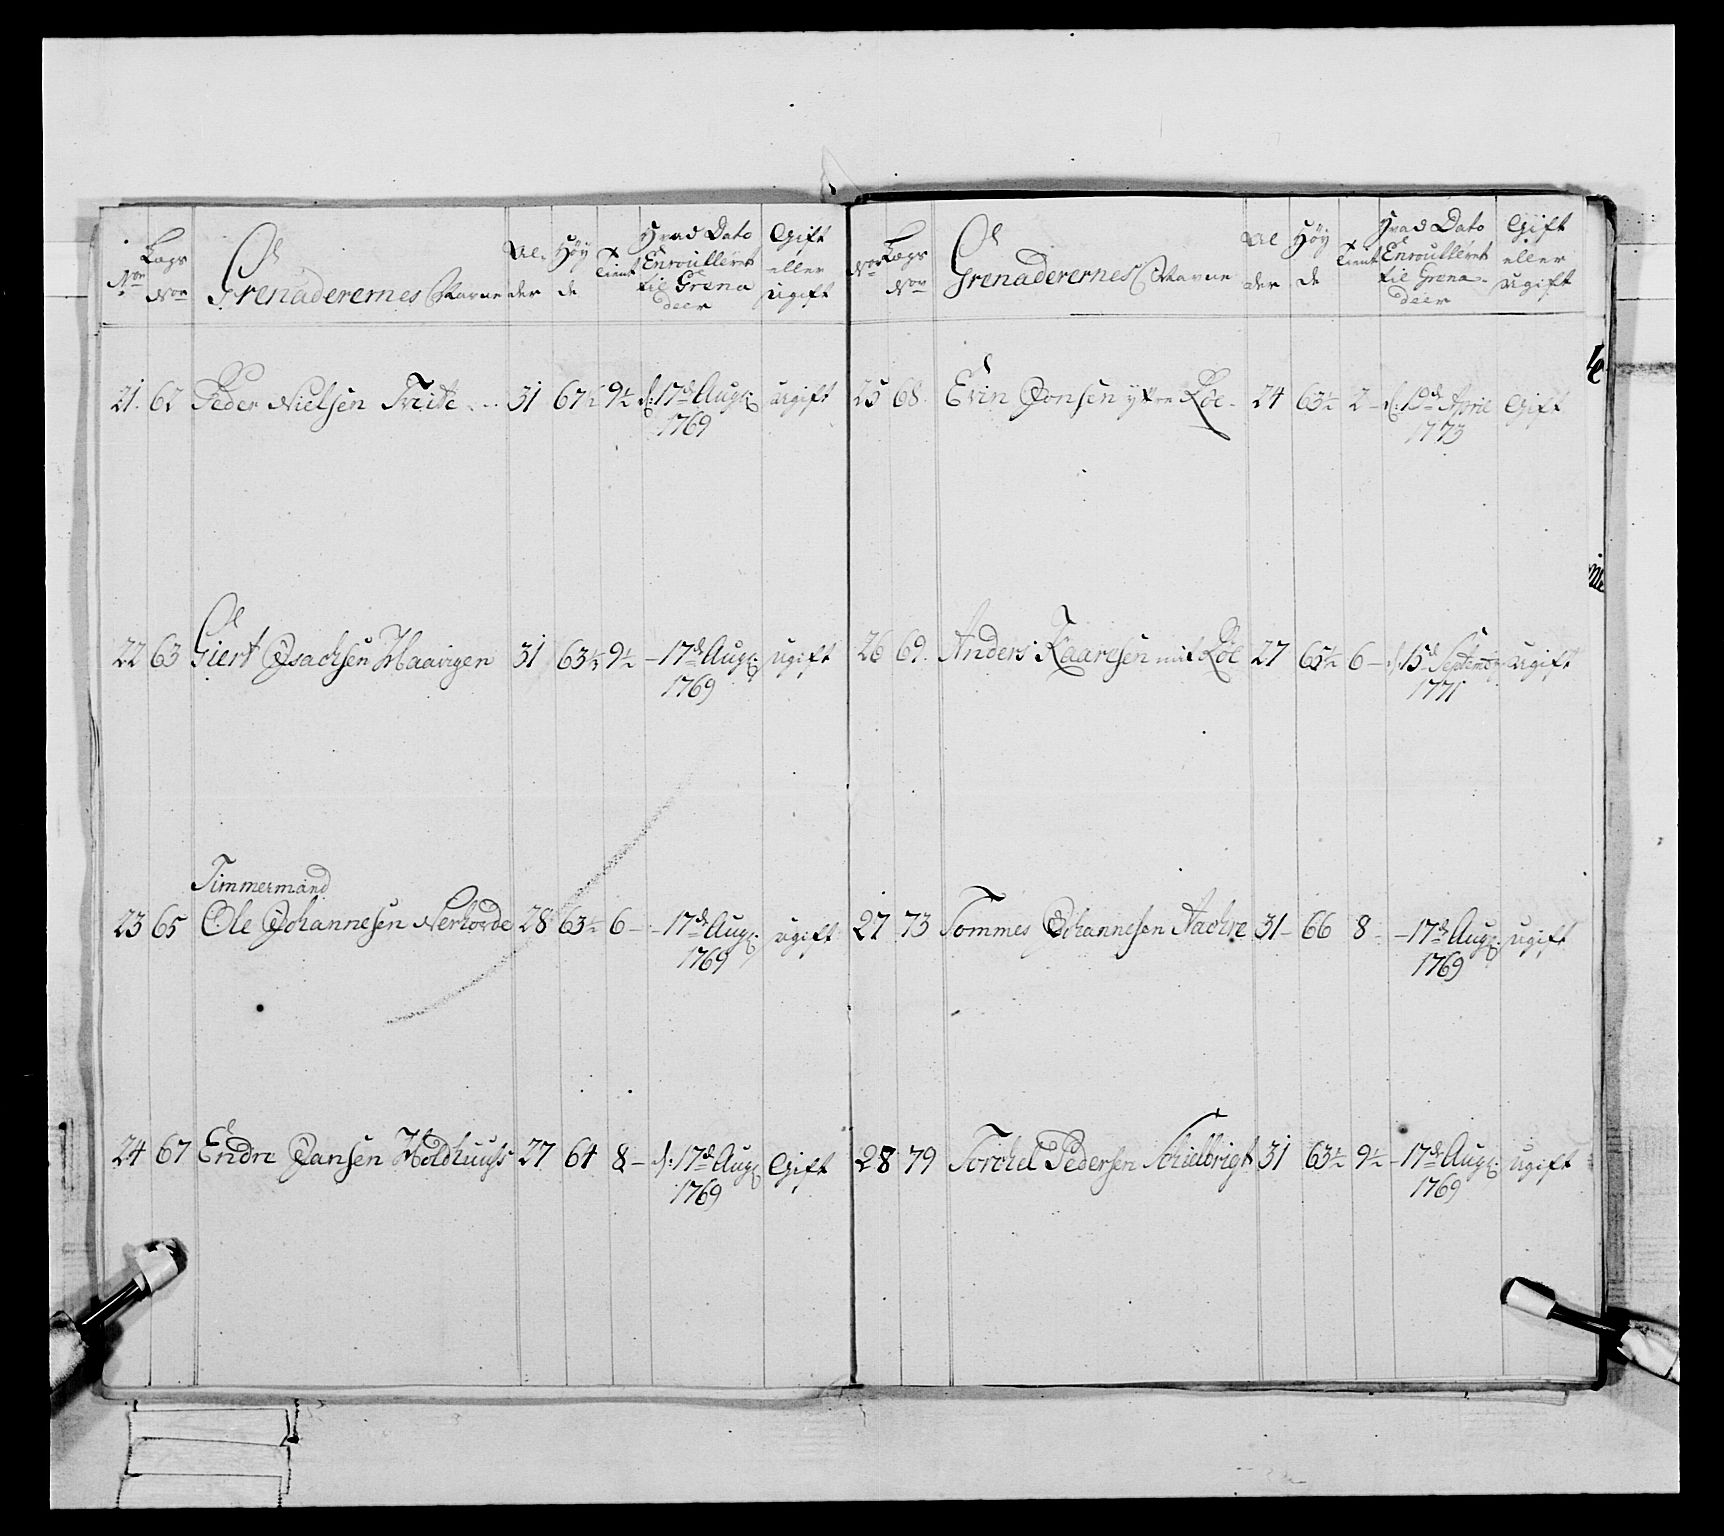 No Lægs No Grenaderernes Navne Alder Høyde Tient Hvad Dato Enroulleret til Grenadeer Gift eller ugift
21. 62 Peder Nielsen Tveite 31 67½ 9½ d: 17de Aug: 1769 ugift
22 63 Giert Isachsen Haavigen 31 63½ 9½ – 17de Aug: 1769 ugift
Timmermand
23 65 Ole Johannesen Nerhovde 28 63½ 6 – – 17de Aug: 1769 ugift
24 67 Endre Jansen Holdhuuss 27 64 8 – d: 17de Aug: 1769 Gift
No Lægs No Grenaderernes Navne Alder Høyde Tient Hvad Dato Enroulleret til Grenadeer Gift eller ugift
25 68. Evin Jonsen ytre Røe 24 63½ 2 – d: 19de April 1773 Gift
26 69. Anders Kaaresen mit Røe 27 65½ 6 – d: 15de Septembr 1771 ugift
27 73 Tommes Johannesen Aachre 31 – 66 8 – 17de Aug: 1769 ugift
28 79 Torchel Pedersen Schielbrigt 31 63½ 9½ – 17de Aug: 1769 ugift